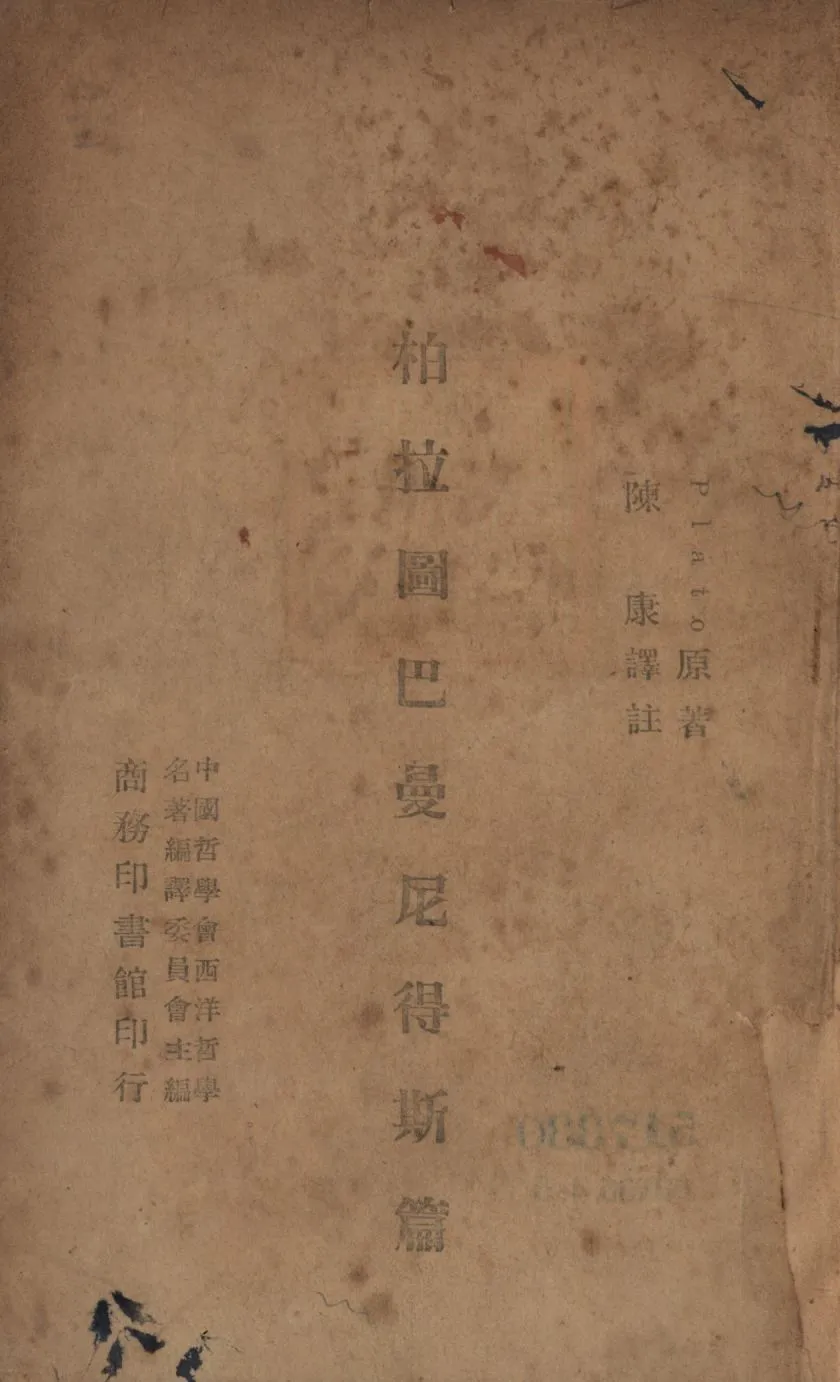 Plato原著
陳康譯註
柏拉圖巴曼尼得斯篇
中國哲學會西洋哲學
名著編譯委員會主編
商務印書館印行